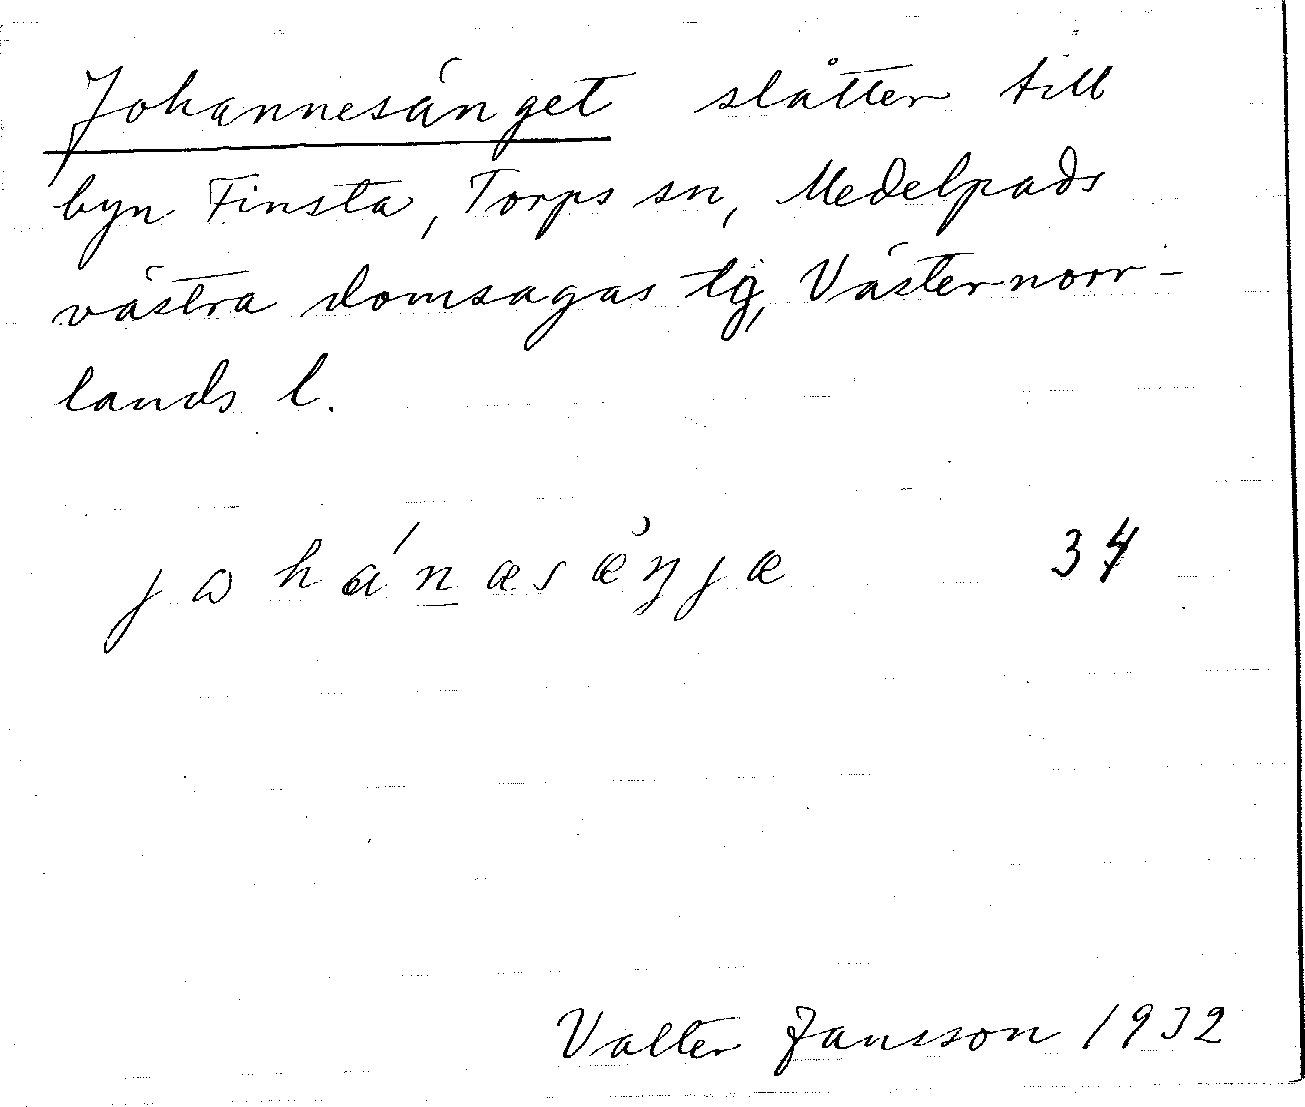 Johannesänget slåtter till
byn Finsta, Torps sn, Medelpads
västra domsagas tg, Västernorr-
lands l.
jωhánæsæ̀ŋjæ 34
Valter Jansson 1932